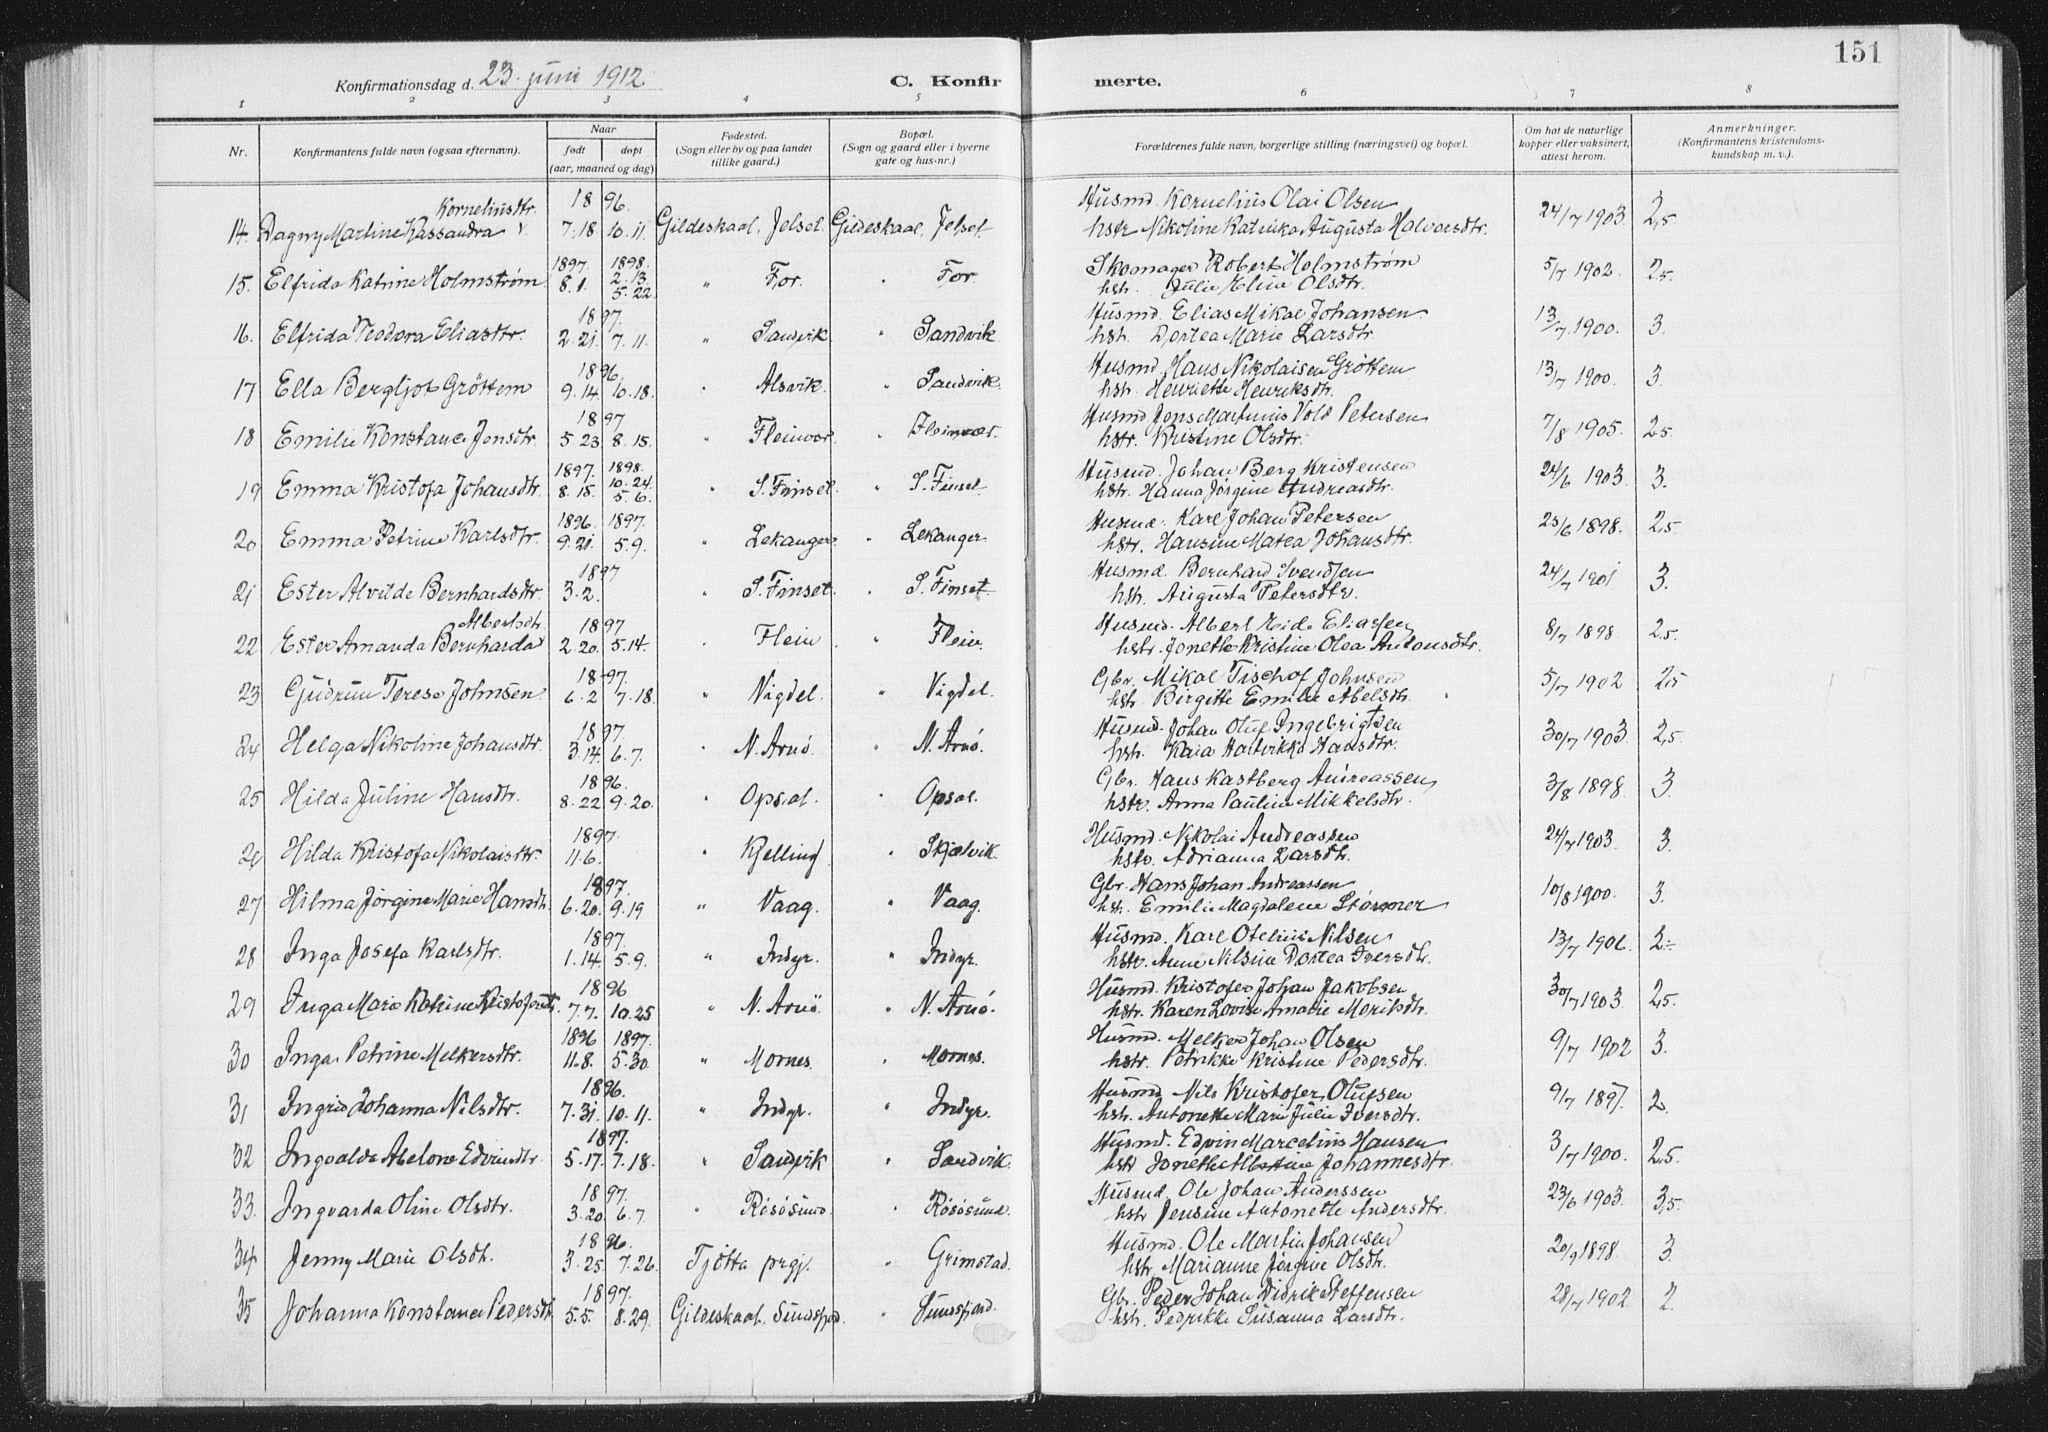 151
Konfirmationsdag d. 23. juni 1912 C. Konfir merte.
1 2 3 4 5 6 7 8
Nr. Konfirmantens fulde navn (ogsaa efternavn). Naar født døpt (aar, maaned og dag) Fødested. (Sogn eller by og paa landet tillike gaard.) Bopæl. (Sogn og gaard eller i byerne gate og hus-nr.) Forældrenes fulde navn, borgerlige stilling (næringsvei) og bopæl. Om hat de naturlige kopper eller vaksinert, attest herom. Anmerkninger. (Konfirmantens kristendoms- kundskap m. v.).
Korneliusdtr. 18 96. Husmd. Kornelius Olai Olsen
14. Dagny Martine Kassandra v 7.18 10.11. Gildeskaal, Jelset. Gildeskaal, Jelset. hstr Nikoline Katinka Augusta Halvorsdtr. 24/7 1903. 2,5
1897. 1898. Skomager Robert Holmstrøm
15. Elfrida Katrine Holmstrøm 8.1. 2.13. 5.22. " For. " For. hstr. Julie Eline Olsdtr. 5/7 1902. 2.5.
1897. Husmd. Elias Mikal Johansen
16. Elfrida Teodora Eliasdtr. 2.21. 7.11. " Sandvik. " Sandvik. hstr. Dortea Marie Larsdtr. 13/7 1900. 3.
1896. Husmd. Hans Nikolaisen Grøttem
17 Ella Bergljot Grøttem 9.14. 10.18. " Alsvik. " Sandvik. hstr. Henriette Henriksdtr. 13/7 1900. 3.
1897 Husmd. Jens Martinus Vold Petersen
18 Emilie Konstance Jensdtr. 5.23 8.15. " Fleinvær. " Fleinvær. hstr. Kristine Olsdtr. 7/8 1905. 2.5.
1897. 1898. Husmd. Johan Berg Kristensen
19 Emma Kristofa Johansdtr. 8.15. 10.24. 5.6. " S. Finset. " S. Finset. hstr. Hanna Jørgine Andreasdtr. 24/6 1903. 3.
1896. 1897. Husmd. Karl Johan Petersen
20 Emma Petrine Karlsdtr. 9.21. 5.9. " Lekanger. " Lekanger. hstr. Hansine Matea Johansdtr. 25/6 1898. 2.5.
1897 Husmd. Bernhard Svendsen
21 Ester Alvilde Bernhardsdtr. 3.2. " S. Finset. " S. Finset. hstr. Augusta Petersdtr. 24/7 1901 3.
Albertsdtr. 1897 Husmd. Albert Eide Eliassen
22 Ester Amanda Bernharda v 2.20. 5.14. " Flein " Flein. hstr. Jonette Kristine Olea Antonsdtr. 8/7 1898 2.5.
1897. Gbr. Mikal Tischof Johnsen
23 Gudrun Terese Johnsen 6.2 7.18. " Nigdel. " Vigdel. hstr. Birgitte Emilie Abelsdtr. 5/7 1902 2.5
1897. Husmd. Johan Oluf Ingebrigtsen
24 Helga Nikoline Johansdtr. 3.14. 6.7. " N. Arnø. " N. Arnø. hstr. Kaia Hartvikka Hansdtr. 30/7 1903. 2,5.
1896. Gbr. Hans Kastberg Andreassen
25 Hilda Juline Hansdtr. 8.22 9.20. " Opsal. " Opsal. hstr. Anna Pauline Mikkelsdtr. 3/8 1898. 3.
1897. Husmd. Nikolai Andreassen
26 Hilda Kristofa Nikolaisdtr. 11.6. " Kjelling " Skjelvik. hstr. Adrianna Larsdtr. 24/7 1903. 3.
1897. Gbr. Hans Johan Andreassen
27 Hilma Jørgine Marie Hansdtr. 6.20. 9.19 " Vaag. " Vaag. hstr. Emilie Magdalene Størmer 10/8 1900. 3.
1897. Husmd. Karl Otelius Nilsen
28 Inga Josefa Karlsdtr. 1.14. 5.9. " Indyr. " Indyr. hstr. Anne Nilsine Dortea Iversdtr. 13/7 1906. 2
1896 Husmd. Kristofer Johan Jakobsen
29 Inga Marie Katrine Kristofersdtr. 7.7. 10.25 " N. Arnø. " N. Arnø. hstr. Karen Lovise Amalie Moritsdtr. 30/7 1903. 2,5.
1896 1897. Husmd. Melker Johan Olsen
30 Inga Petrine Melkersdtr. 11.8. 5.30 " Mornes. " Mornes. hstr. Petrikke Kristine Pedersdtr. 9/7 1902 3.
1896. Husmd Nils Kristofer Olufsen
31 Ingrid Johanna Nilsdtr. 7.31. 10.11. " Indyr. " Indyr. hstr. Antonette Marie Julie Iversdtr. 9/7 1897. 2.
1897. Husmd. Edvin Marcelius Hansen
32 Ingvalda Abelone Edvindtr. 5.17. 7.18. " Sandvik " Sandvik. hstr Jonette Albertine Johannesdtr. 3/7 1900. 2.5.
1897. Husmd Ole Johan Anderssen
33. Ingvarda Oline Olsdtr. 3.20. 6.7. " Rösösund. " Rösösund. hstr Jensine Antonette Andersdtr. 23/6 1903. 3,5.
1896. Husmd. Ole Martin Johansen
34 Jenny Marie Olsdtr. 3.25. 7.26. Tjøtta prgj. " Grimstad. hstr. Marianne Jørgine Olsdtr. 20/9 1898. 3.
1897. Gbr. Peder Johan Didrik Steffensen
35 Johanna Konstance Pedersdtr 5.5. 8.29. Gildeskaal. Sundsfjord. " Sundsfjord. hstr. Pedrikke Susanna Larsdtr. 28/7 1902. 2.